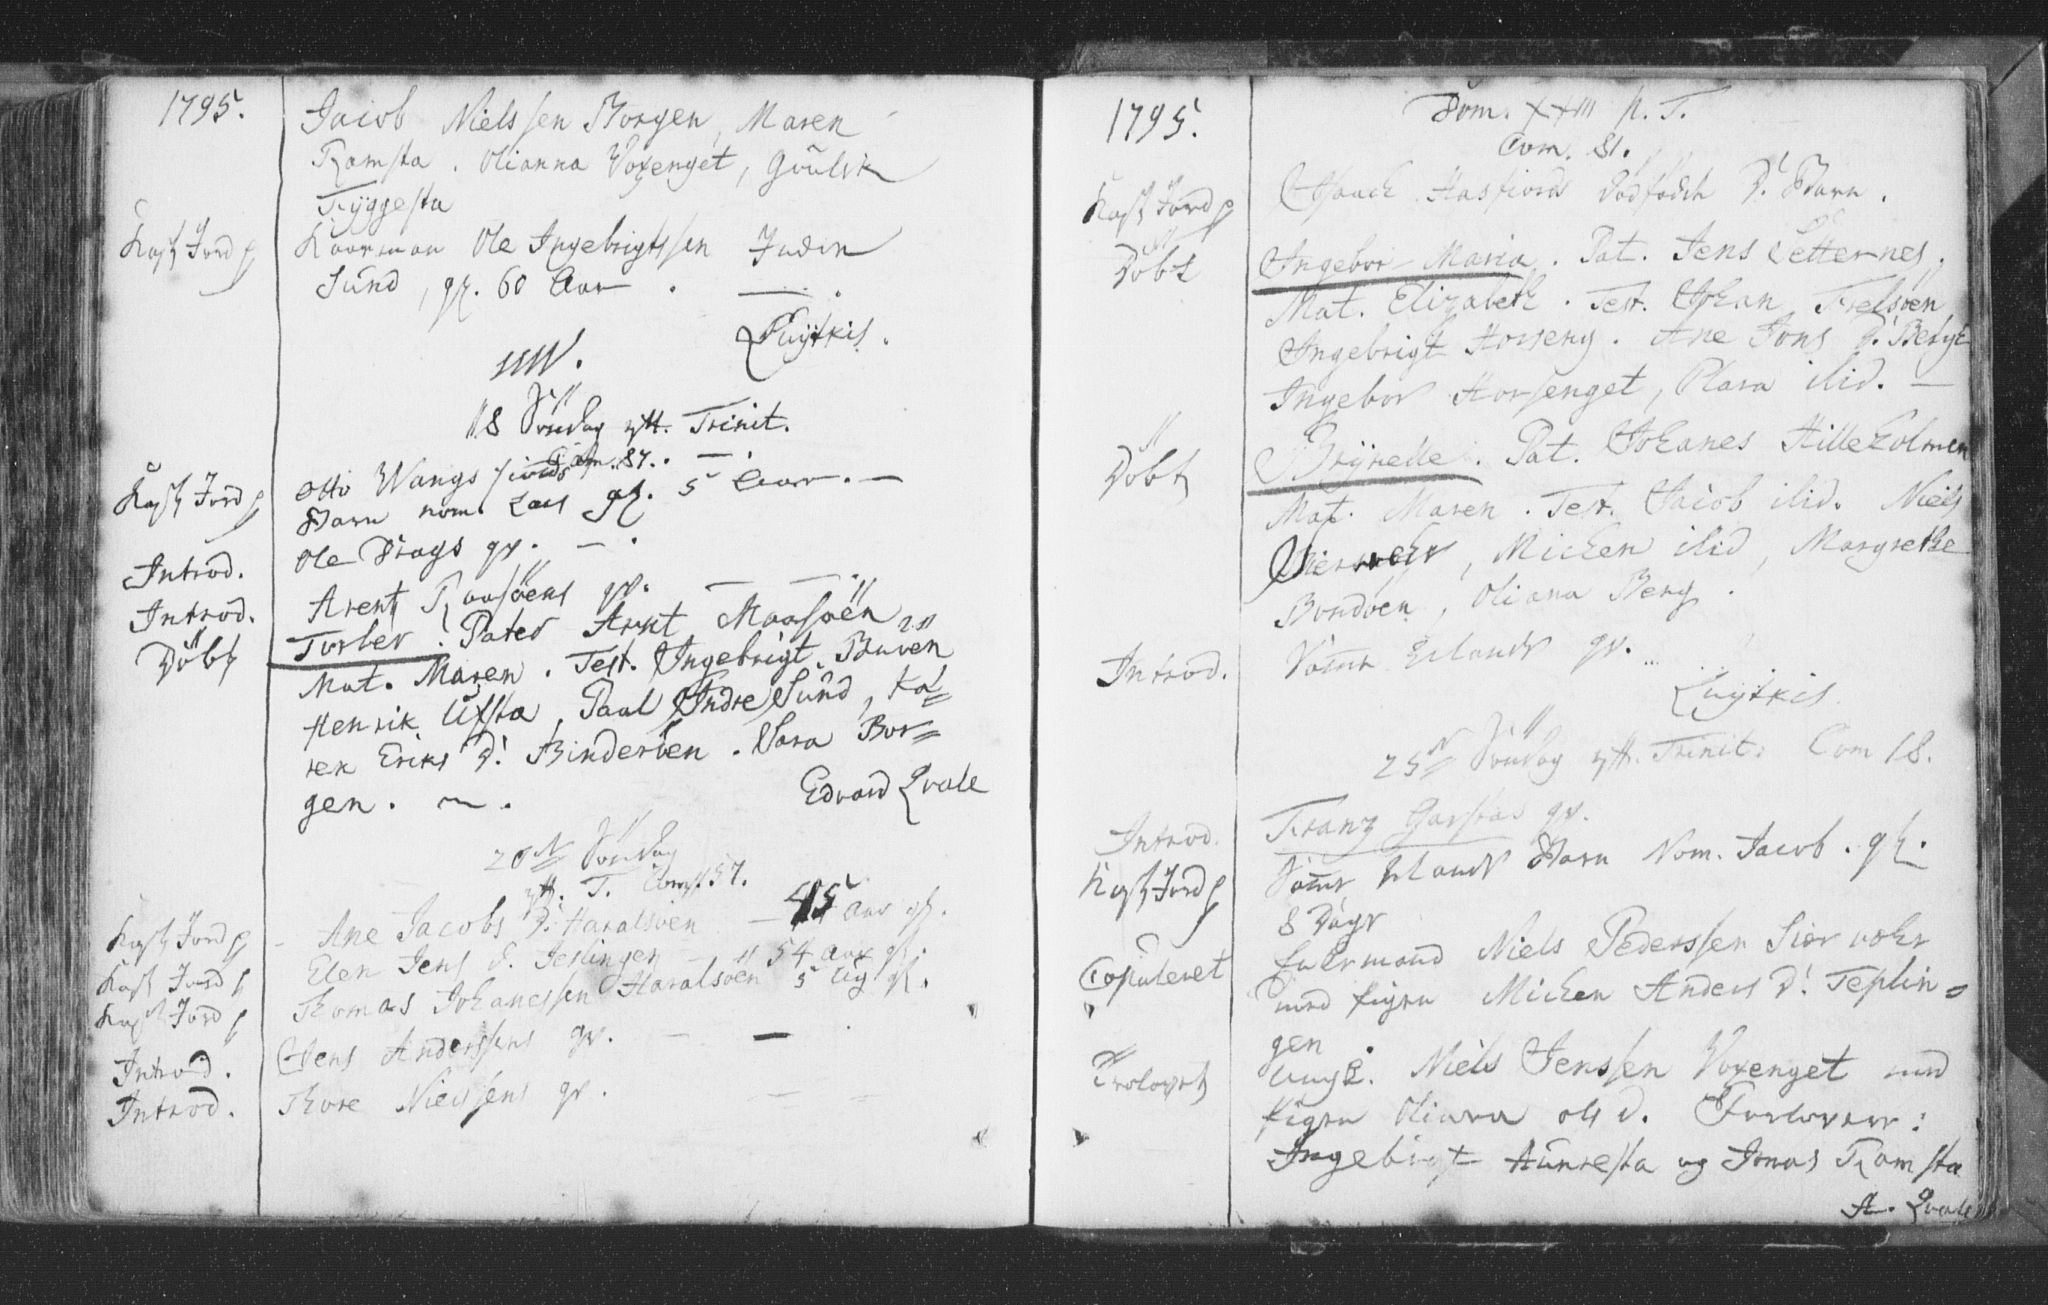 1795.
Jacob Nielssen Borgen, Maren
Ramsta. Olianna Voxenget, Gulik
Tryggesta
Kast Jord p
Ole Ingebrigtssen Indre
Sund, gl. 60 Aar.
Luytkis.
18 Søndag ytt. Trinit.
Com. 87.
Kast Jord p
Otto Wangs
Barn nom. Lars gl. 5 Aar.
Introd.
Ole Vrags qv.
Introd.
Arent Raasöens qv.
Döbt
Torber. Pater Arnt Maasöen
Mat. Maren. Test. Ingebrigt Buven
Henrik Ufsta, Paal Indre Sund, Ka=
ren Eriks D. Binderöen. Sara Bor=
gen.
Edvard Qvale
20 Søndag
ytt. T. Com. 57.
Kast Jord p
Ane Jacobs D. Haralsöen 45 Aar gl.
Kast Jord p
Elen Jens D. Teplingen 54 Aar gl.
Kast Jord p
Thomas Johanessen Haralsöen 5 Ug gl.
Introd.
Jens Anderssens qv.
Introd.
Thore Nielssens qv.
1795.
Dom. XXIII p. T.
Com. 81.
Kast Jord p
Isaach Hasfiords dødfødde D. Barn.
Döbt
Ingebor Maria. Pat. Jens Setternes.
Mat. Elizabeth. Test. Johan Trelsöen
Ingebrigt Horseng. Ane Jons D. Berg
Ingebor Horsenget, Plara ibid.
Döbt
Brynelle. Pat. Johanes Hilleholmen
Mat. Maren. Test. Jacob ibid. Niels
Siervohr, Micken ibid, Margrethe
Bondöen, Oliana Berg.
Introd.
Erlands qv.
Luytkis.
25 Søndag ytt. Trinit: Com 18.
Introd.
Franz Garstas qv.
Kast Jord p
Erlands Barn Nom. Jacob. gl.
8 Dage
Copuleret
Niels Pederssen Siervohr
med Pigen Micken Anders D. Teplin=
gen.
Trolovet
Ungk. Niels Jenssen Voxenget med
Pigen Oliana Ols D. Forlovere:
Ingebrigt Aunresta og Jonas Ramsta
A. Qvale